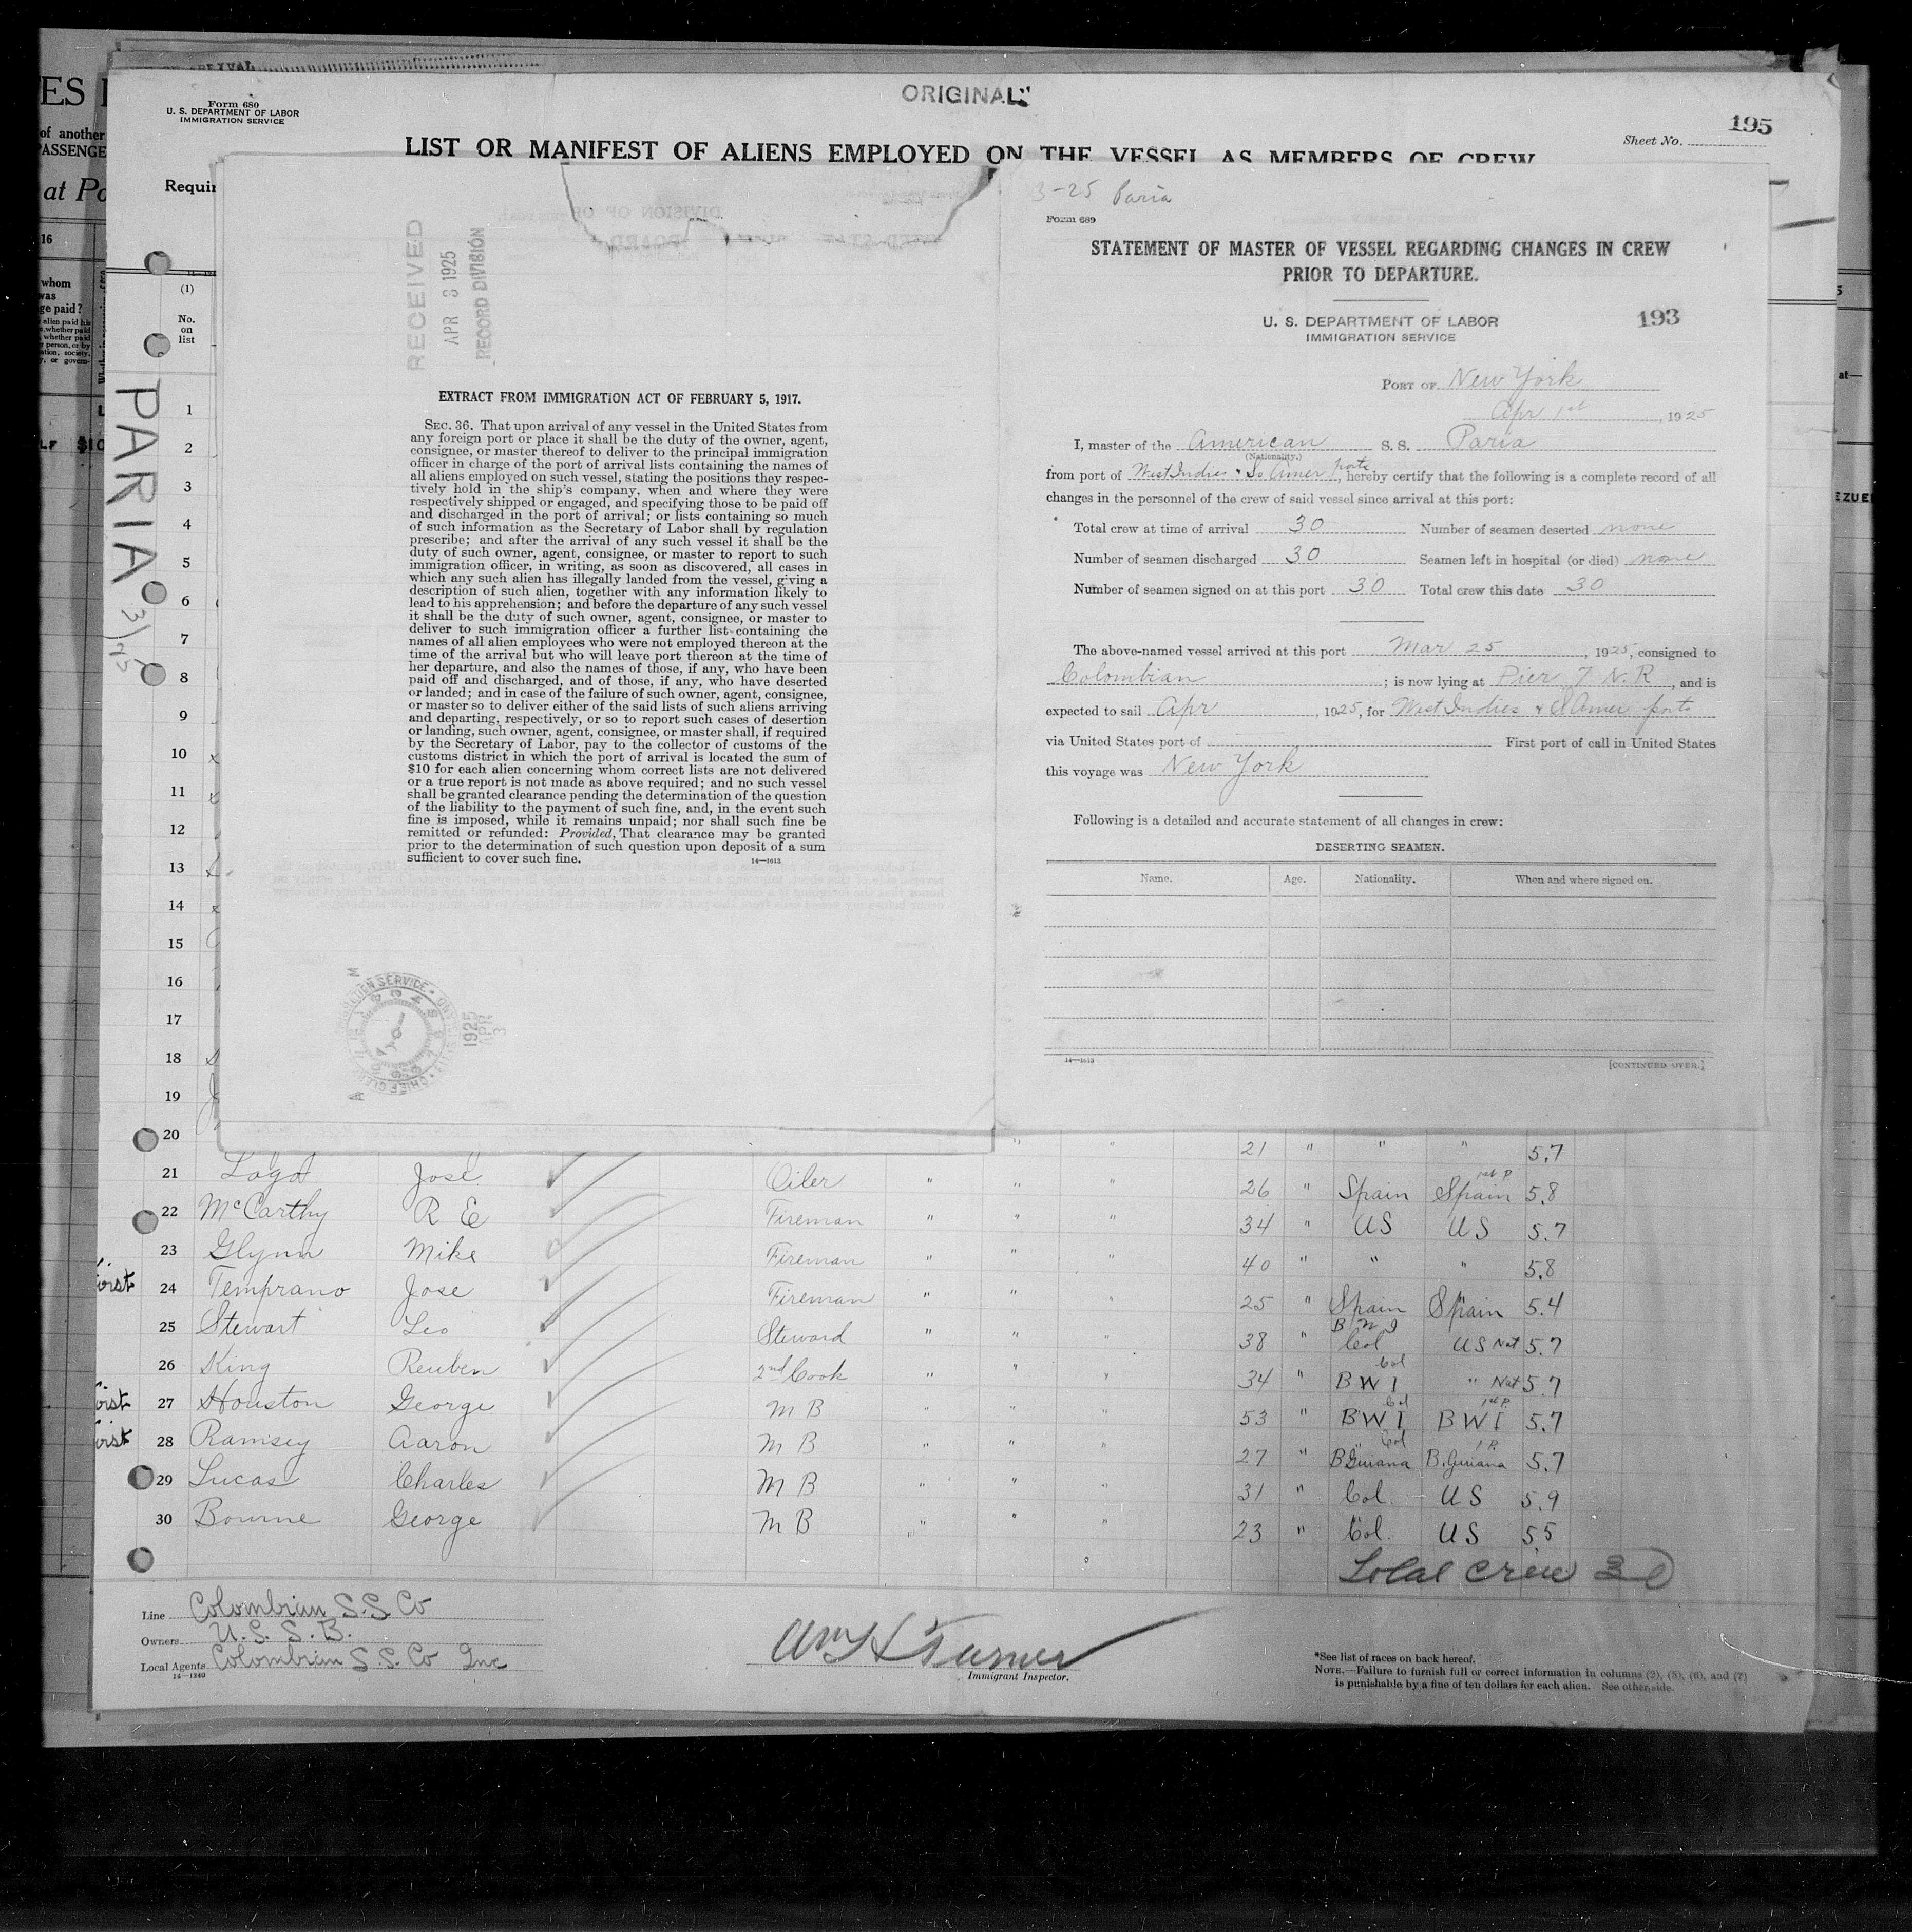 ORIGINAL
Form 680
U. S. DEPARTMENT OF LABOR
IMMIGRATION SERVICE
Sheet No.
195
LIST OR MANIFEST OF ALIENS EMPLOYED ON THE VESSEL AS MEMBERS OF CREW
ES
of another
PASSENGE
at Po
16
whom
was
ge paid?
(1)
No.
on
list
PARIA
3/25
RECEIVED
APR 3 1925
RECORD DIVISION
EXTRACT FROM IMMIGRATION ACT OF FEBRUARY 5, 1917.
SEC. 36. That upon arrival of any vessel in the United States from
any foreign port or place it shall be the duty of the owner, agent,
consignee, or master thereof to deliver to the principal immigration
officer in charge of the port of arrival lists containing the names of
all aliens employed on such vessel, stating the positions they respec-
tively hold in the ship's company, when and where they were
respectively shipped or engaged, and specifying those to be paid off
and discharged in the port of arrival; or lists containing so much
of such information as the Secretary of Labor shall by regulation
prescribe; and after the arrival of any such vessel it shall be the
duty of such owner, agent, consignee, or master to report to such
immigration officer, in writing, as soon as discovered, all cases in
which any such alien has illegally landed from the vessel, giving a
description of such alien, together with any information likely to
lead to his apprehension; and before the departure of any such vessel
it shall be the duty of such owner, agent, consignee, or master to
deliver to such immigration officer a further list containing the
names of all alien employees who were not employed thereon at the
time of the arrival but who will leave port thereon at the time of
her departure, and also the names of those, if any, who have been
paid off and discharged, and of those, if any, who have deserted
or landed; and in case of the failure of such owner, agent, consignee,
or master so to deliver either of the said lists of such aliens arriving
and departing, respectively, or so to report such cases of desertion
or landing, such owner, agent, consignee, or master shall, if required
by the Secretary of Labor, pay to the collector of customs of the
customs district in which the port of arrival is located the sum of
$10 for each alien concerning whom correct lists are not delivered
or a true report is not made as above required; and no such vessel
shall be granted clearance pending the determination of the question
of the liability to the payment of such fine, and, in the event such
fine is imposed, while it remains unpaid; nor shall such fine be
remitted or refunded: Provided, That clearance may be granted
prior to the determination of such question upon deposit of a sum
sufficient to cover such fine.
14—1613
1925
APR
3
3-25 Paria
Form 689
STATEMENT OF MASTER OF VESSEL REGARDING CHANGES IN CREW
PRIOR TO DEPARTURE.
U. S. DEPARTMENT OF LABOR
IMMIGRATION SERVICE
193
PORT OF New York
Apr 1st, 1925
I, master of the American S. S. Paria
(Nationality.)
from port of West Indies & So Amer ports, hereby certify that the following is a complete record of all
changes in the personnel of the crew of said vessel since arrival at this port:
Total crew at time of arrival 30 Number of seamen deserted none
Number of seamen discharged 30 Seamen left in hospital (or died) none
Number of seamen signed on at this port 30 Total crew this date 30
The above-named vessel arrived at this port Mar 25, 1925, consigned to
Colombian; is now lying at Pier 7 N. R, and is
expected to sail Apr, 1925, for West Indies & S Amer ports
via United States port of First port of call in United States
this voyage was New York
Following is a detailed and accurate statement of all changes in crew:
DESERTING SEAMEN.
Name. Age. Nationality. When and where signed on.
14—1613
[CONTINUED OVER.]
1
2
3
4
5
6
7
8
9
10
11
12
13
14
15
16
17
18
19
20 21 " " " 5.7
21 Jose Oiler " " " 26 " Spain Spain 1st P. 5.8
22 McCarthy R E Fireman " " " 34 " US US 5.7
23 Glynn Mike Fireman " " " 40 " " " 5.8
24 Temprano Jose Fireman " " " 25 " Spain Spain 5.4
25 Stewart Leo Steward " " " 38 " B W I Col US Nat 5.7
26 King Reuben 2nd Cook " " " 34 " B W I Col " Nat 5.7
27 Houston George M B " " " 53 " B W I Col B W I 1st P. 5.7
28 Ramsey Aaron M B " " " 27 " B Guiana Col B. Guiana 1 P. 5.7
29 Lucas Charles M B " " " 31 " Col. US 5.9
30 Bourne George M B " " " 23 " Col. US 5 5
Total Crew 30
Line Colombian S.S. Co
Owners U. S. S. B.
Local Agents Colombian S.S. Co Inc
14—1240
Turner
Immigrant Inspector.
*See list of races on back hereof.
NOTE.—Failure to furnish full or correct information in columns (2), (5), (6), and (7)
is punishable by a fine of ten dollars for each alien. See other side.